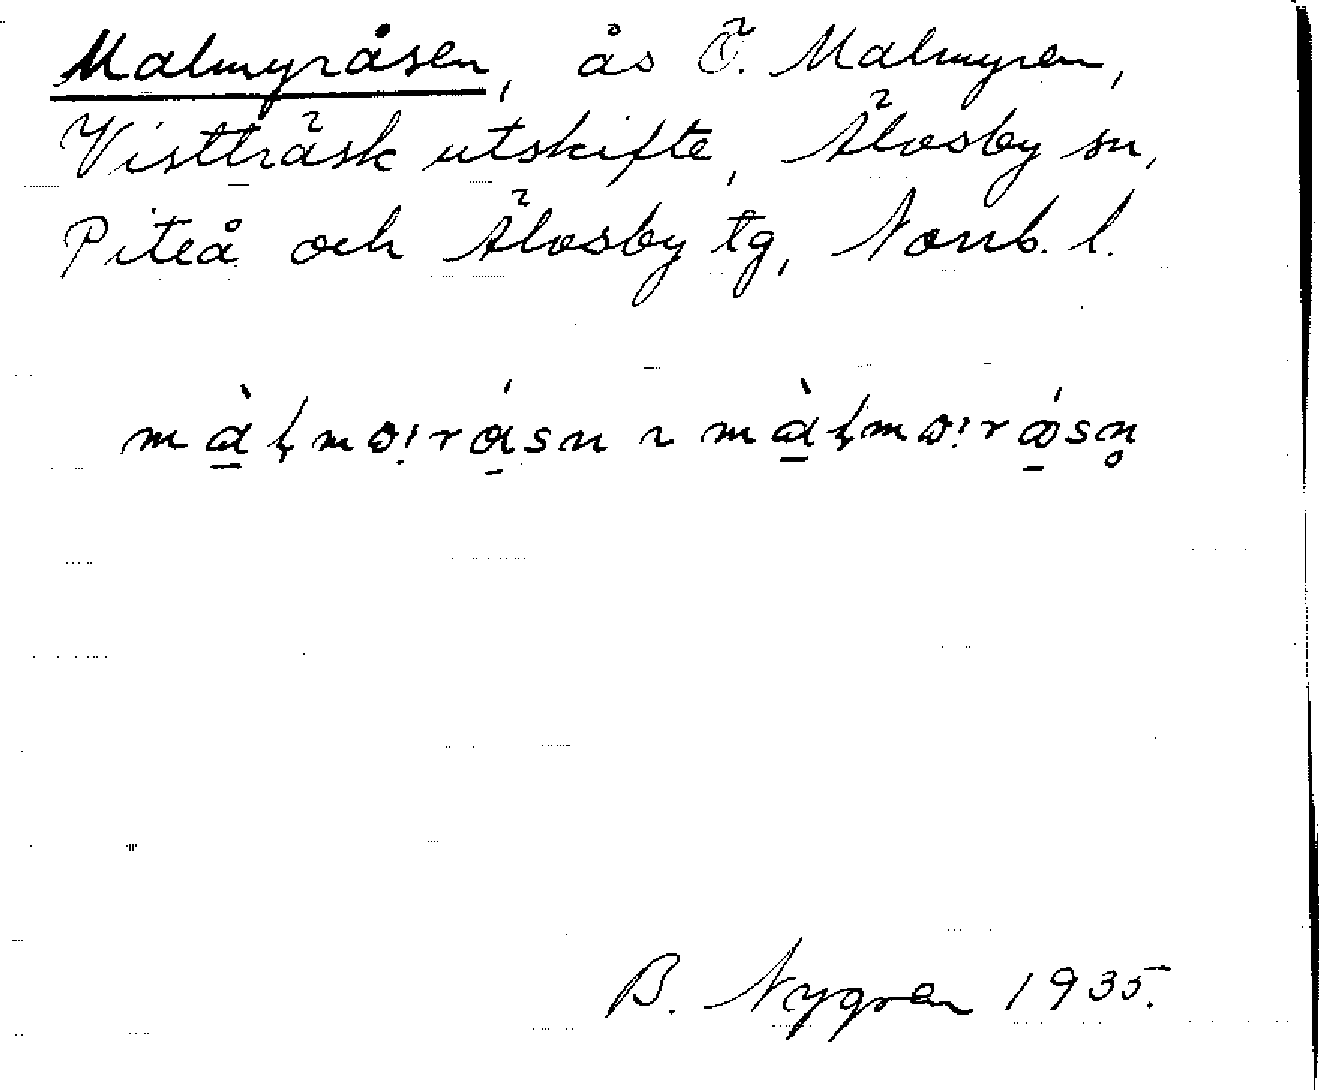 Malmyråsen, ås Ö. Malmyren,
Vistträsk utskifte, Älvsby sn,
Piteå och Älvsby tg, Norrb. l.
B. Nygren 1935.